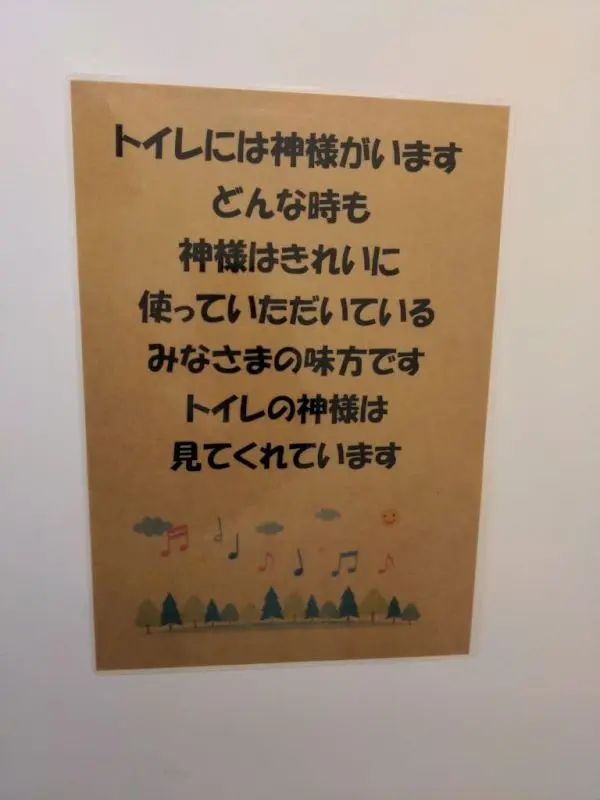 トイレには神様がいます
どんな時も
神様はきれいに
使っていただいている
みなさまの味方です
トイレの神様は
見てくれています